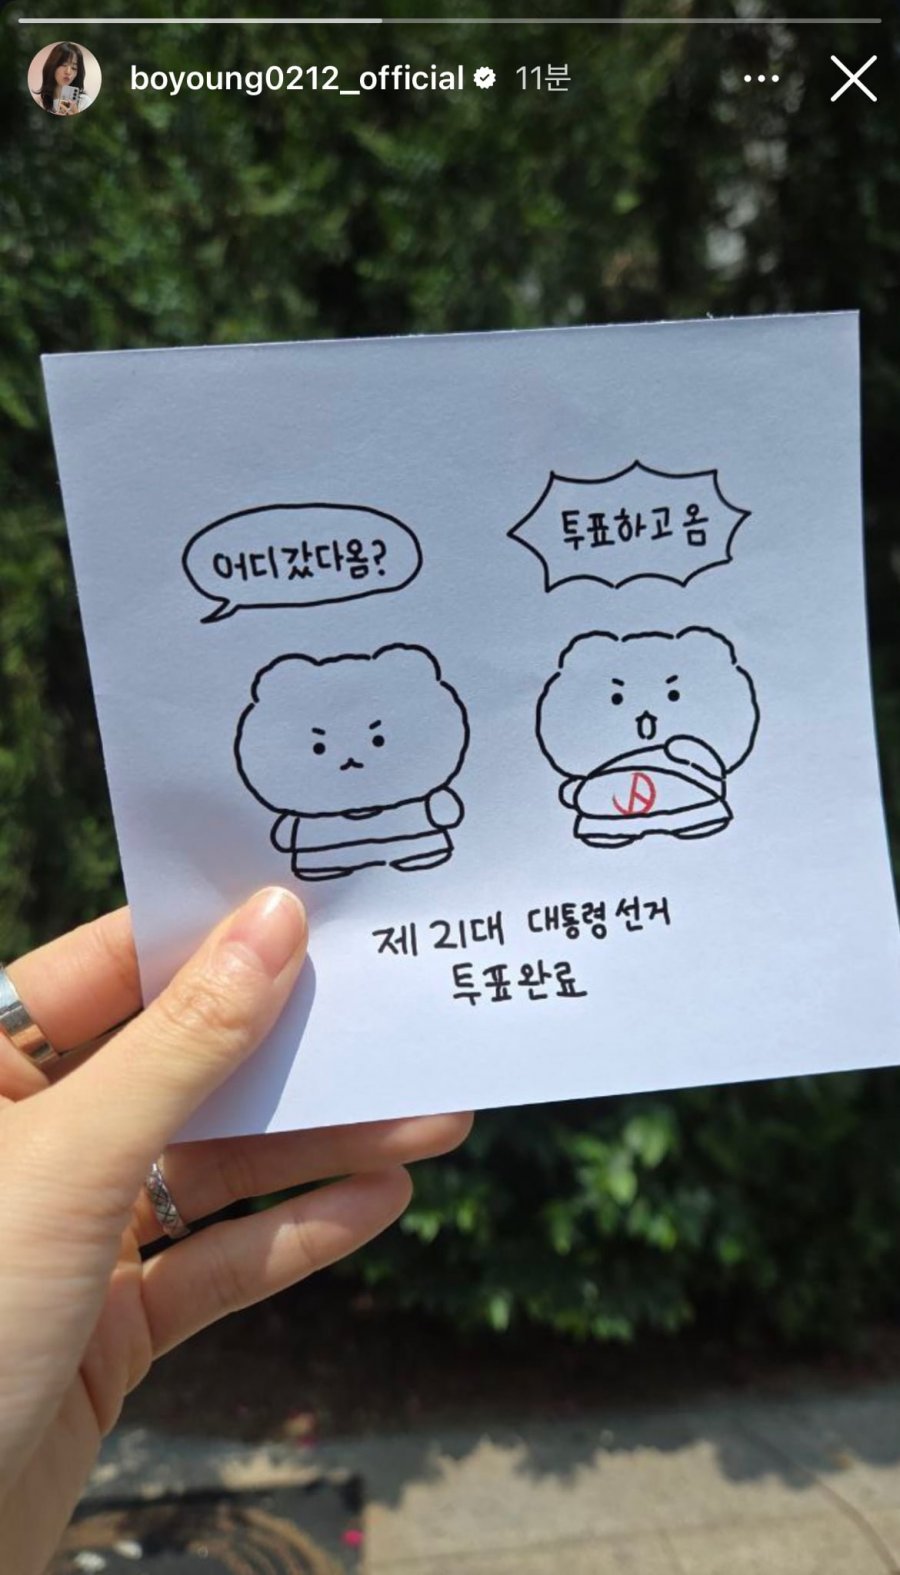 boyoung0212_official 11분
어디갔다옴?
투표하고 옴
제 21대 대통령선거
투표완료